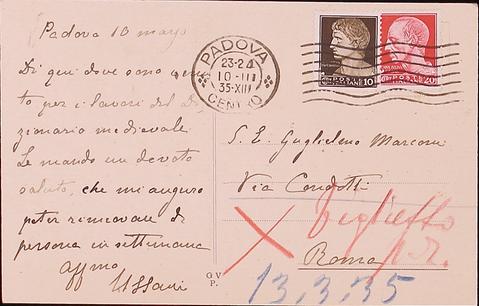 Padova 10 marzo
Di qui dove sono venu
to per i lavori del Di
zionario medievale
Le mando un devoto
saluto, che mi auguro
poter rinnovare di
persona in settimana
affmo
Ussani
PADOVA
23-24
10-III
35-XIII
CENTRO
POSTE ITALIANE 10
POSTE ITALIANE 20
S. E. Guglielmo Marconi
Via Condotti
Roma
biglietto
G V
P.
13,3,35